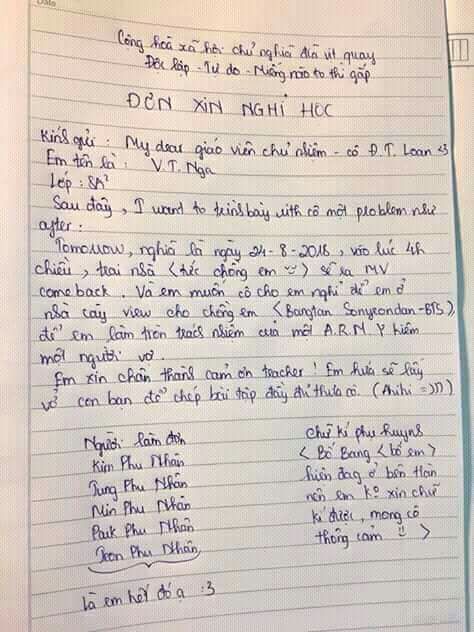 Cộng hoà xã hội chủ nghĩa đĩa vịt quay
Độc lập - Tự do - Miếng nào to thì gắp
ĐƠN XIN NGHỈ HỌC
Kính gửi : My dear giáo viên chủ nhiệm - cô Đ.T. Loan <3
Em tên là : V.T. Nga
Lớp : 8A²
Sau đây , I want to trình bày with cô một problem như
after :
Tomorrow, nghĩa là ngày 24-8-2018 , vào lúc 4h
chiều , trai nhà < tức chồng em > sẽ ra MV
comeback . Và em muốn cô cho em nghỉ để em ở
nhà cày view cho chồng em < Bangtan Sonyeondan - BTS >,
để em làm tròn trách nhiệm của một A.R.M.Y kiêm
một người vợ .
Em xin chân thành cảm ơn teacher ! Em hứa sẽ lấy
vở con bạn để chép bài tập đầy đủ thưa cô. (Ahihi =)))
Người làm đơn
Kim Phu Nhân
Jung Phu Nhân
Min Phu Nhân
Park Phu Nhân
Jeon Phu Nhân
là em hết đó ạ :3
Chữ kí phụ huynh
< Bố Bang < bố em >
hiện đag ở bên Hàn
nên em k° xin chữ
kí được , mong cô
thông cảm >